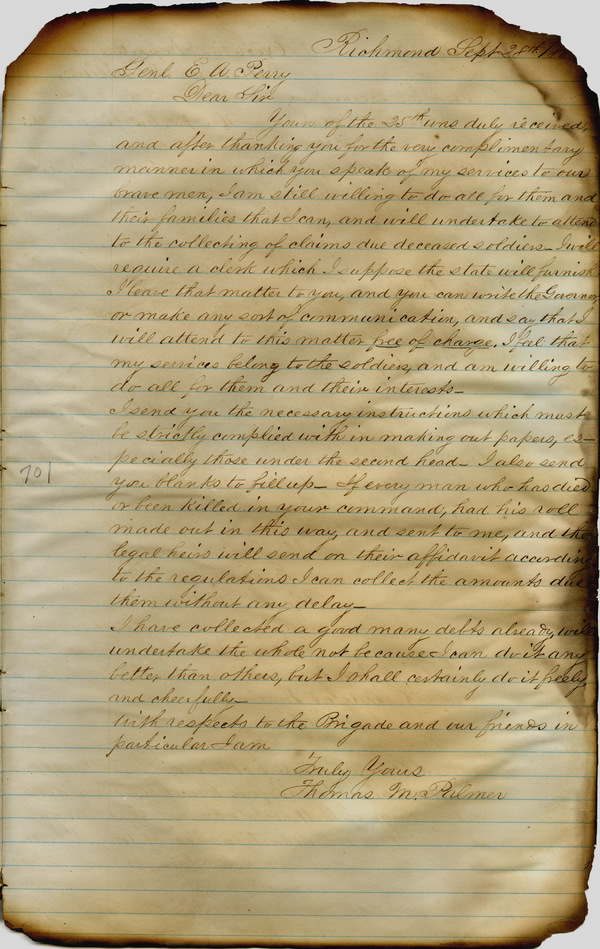 Richmond Sept 28th
Genl E A. Perry
Dear Sir
Yours of the 25th was duly received,
and after thanking you for the very complimentary
manner in which you speak of my services to our
brave men, I am still willing to do all for them and
their families that I can, and will undertake to attend
to the collecting of claims due deceased soldiers_ I will
require a clerk which I suppose the state will furnish
I leave that matter to you, and you can write the Governor
or make any sort of communication, and say that I
will attend to this matter free of charge. I feel that
my services belong to the soldiers, and am willing to
do all for them and their interests_
I send you the necessary instructions which must
be strictly complied with in making out papers, es-
pecially those under the second head_ I also send
you blanks to fill up_ If every man who has died
or been killed in your command, had his roll
made out in this way, and sent to me, and the
legal heirs will send on their affidavit according
to the regulations I can collect the amounts due
them without any delay_
I have collected a good many debts already, will
undertake the whole not because I can do it any
better than others, but I shall certainly do it freely
and cheerfully_
With respects to the Brigade and our friends in
particular I am
Truly Yours
Thomas M. Palmer
701